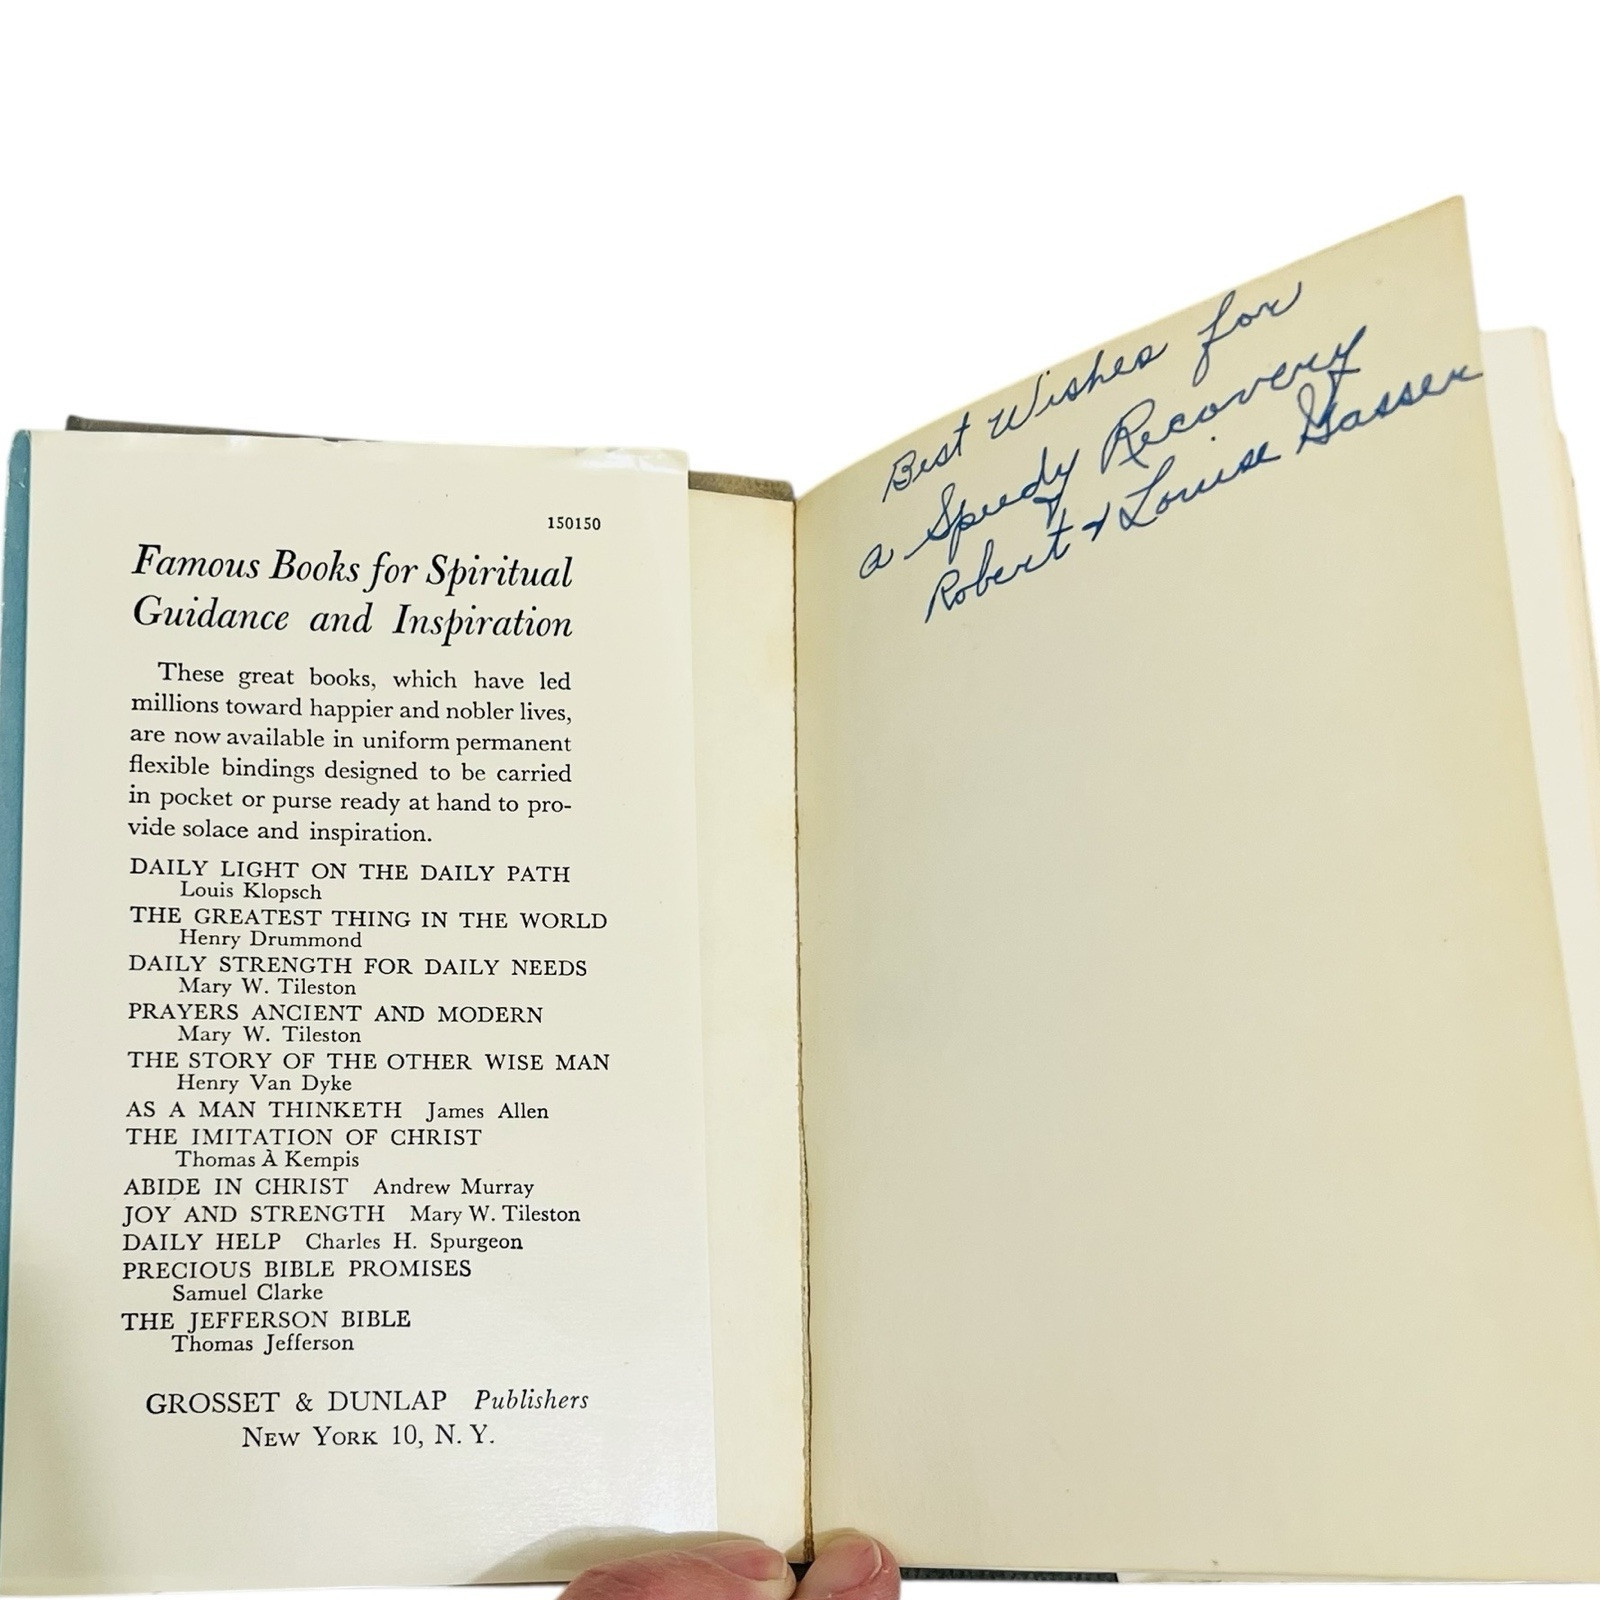 150150
Famous Books for Spiritual
Guidance and Inspiration
These great books, which have led
millions toward happier and nobler lives,
are now available in uniform permanent
flexible bindings designed to be carried
in pocket or purse ready at hand to pro-
vide solace and inspiration.
DAILY LIGHT ON THE DAILY PATH
Louis Klopsch
THE GREATEST THING IN THE WORLD
Henry Drummond
DAILY STRENGTH FOR DAILY NEEDS
Mary W. Tileston
PRAYERS ANCIENT AND MODERN
Mary W. Tileston
THE STORY OF THE OTHER WISE MAN
Henry Van Dyke
AS A MAN THINKETH James Allen
THE IMITATION OF CHRIST
Thomas À Kempis
ABIDE IN CHRIST Andrew Murray
JOY AND STRENGTH Mary W. Tileston
DAILY HELP Charles H. Spurgeon
PRECIOUS BIBLE PROMISES
Samuel Clarke
THE JEFFERSON BIBLE
Thomas Jefferson
GROSSET & DUNLAP Publishers
NEW YORK 10, N. Y.
Best Wishes for
a Speedy Recovery
Robert & Louise Gasser